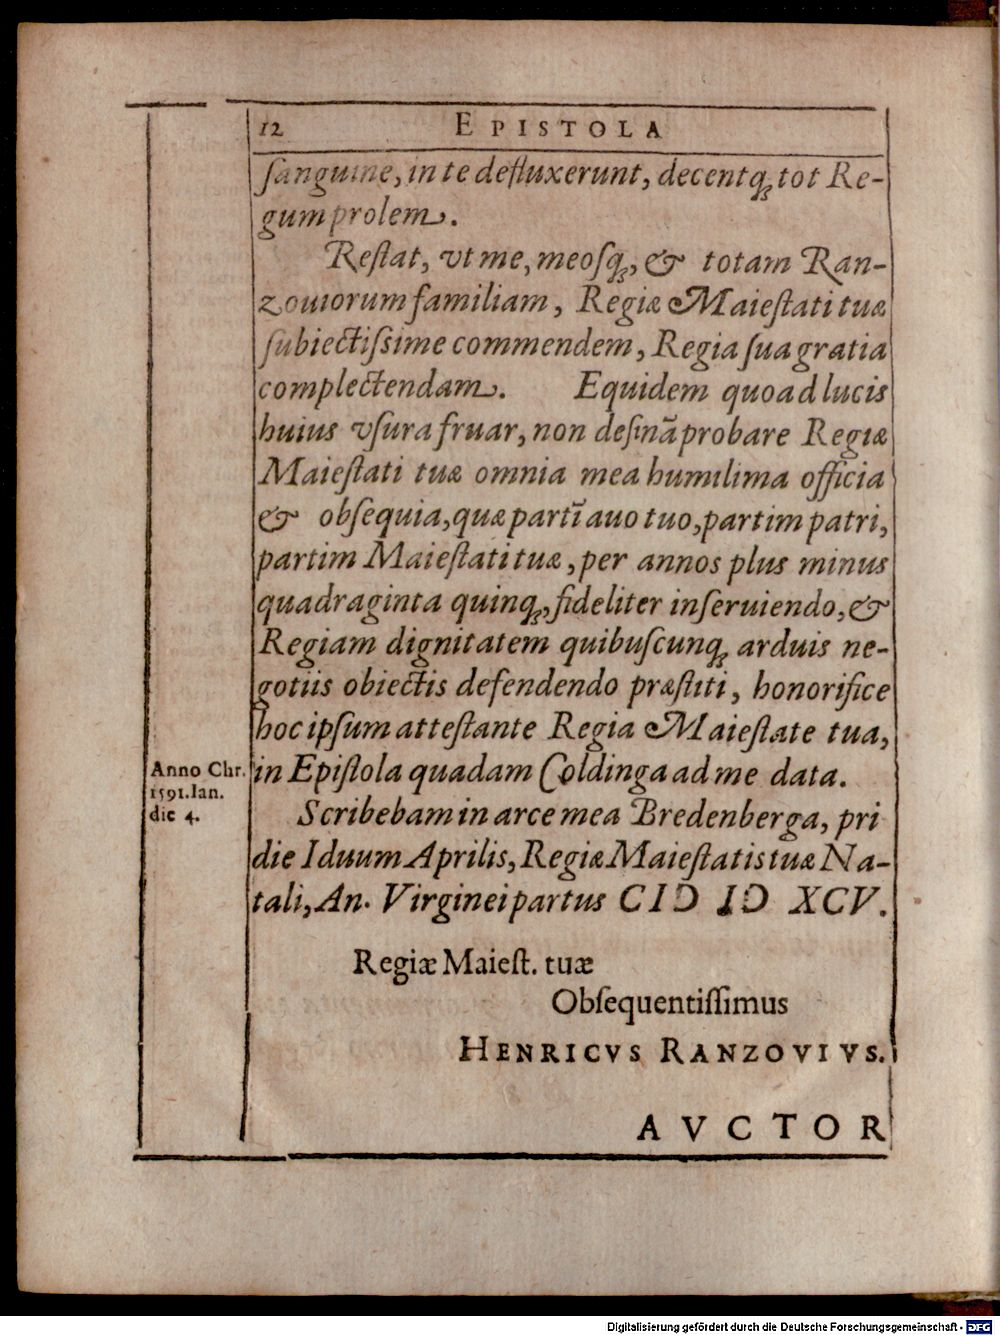 12 EPISTOLA
sanguine, in te defluxerunt, decentq́ꝫ tot Re-
gum prolem.
Reſtat, vt me, meoſqꝫ, & totam Ran-
zouiorum familiam, Regiæ Maieſtati tuæ
ſubiectiſsime commendem, Regia ſua gratia
complectendam. Equidem quoad lucis
huius vſura fruar, non deſinã probare Regiæ
Maieſtati tuæ omnia mea humilima officia
& obſequia, quæ partĩ auo tuo, partim patri,
partim Maieſtati tuæ, per annos plus minus
quadraginta quinqꝫ, fideliter inſeruiendo, &
Regiam dignitatem quibuſcunqꝫ arduis ne-
gotiis obiectis defendendo præſtiti, honorifice
hoc ipſum atteſtante Regia Maieſtate tua,
Anno Chr.
1591. Ian.
die 4.
in Epiſtola quadam Coldinga ad me data.
Scribebam in arce mea Bredenberga, pri
die Iduum Aprilis, Regiæ Maieſtatis tuæ Na-
tali, An. Virginei partus CIↃ IↃ XCV.
Regiæ Maieſt. tuæ
Obſequentiſſimus
HENRICVS RANZOVIVS.
AVCTOR
Digitalisierung gefördert durch die Deutsche Forschungsgemeinschaft - DFG